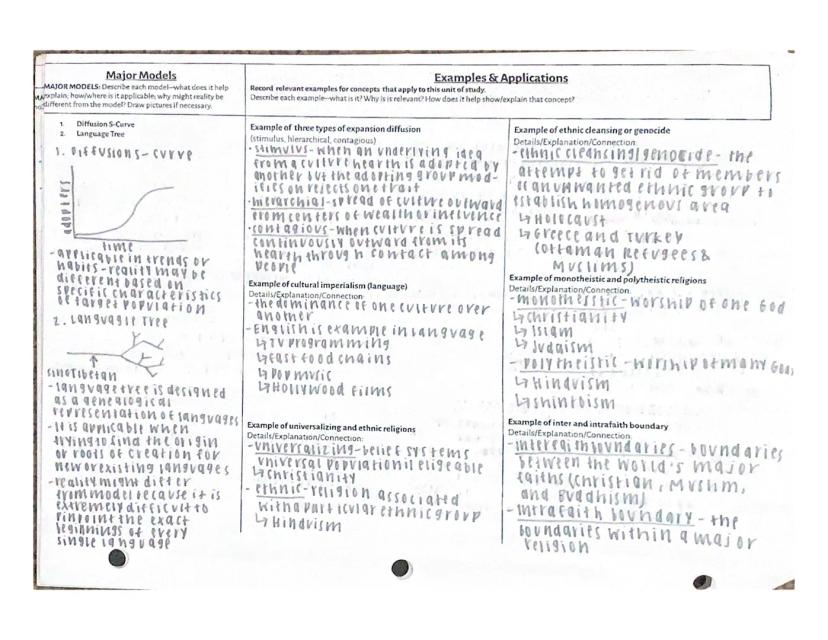 Major Models
MAJOR MODELS: Describe each model—what does it help
explain; how/where is it applicable; why might reality be
different from the model? Draw pictures if necessary.
1. Diffusion S-Curve
2. Language Tree
1. Diffusion S-curve
adopters
time
-applicable in trends or
habits-reality may be
different based on
specific characteristics
of target population
2. Language Tree
sinotibetan
-language tree is designed
as a genealogical
representation of languages
-it is applicable when
trying to find the origin
or roots of creation for
new or existing languages
-reality might differ
from model because it is
extremely difficult to
pinpoint the exact
beginnings of every
single language
Examples & Applications
Record relevant examples for concepts that apply to this unit of study.
Describe each example—what is it? Why is is relevant? How does it help show/explain that concept?
Example of three types of expansion diffusion
(stimulus, hierarchical, contagious)
·stimulus-when an underlying idea
from a culture hearth is adopted by
another but the adopting group mod-
ifies or rejects one trait
·hierarchial-spread of culture outward
from centers of wealth or influence
·contagious-when culture is spread
continuously outward from its
hearth through contact among
people
Example of cultural imperialism (language)
Details/Explanation/Connection:
-the dominance of one culture over
another
-English is example in language
↳TV programming
↳fast food chains
↳Pop music
↳Hollywood films
Example of universalizing and ethnic religions
Details/Explanation/Connection:
-universalizing-belief systems
universal population eligeable
↳christianity
-ethnic-religion associated
with a particular ethnic group
↳Hinduism
Example of ethnic cleansing or genocide
Details/Explanation/Connection:
-ethnic cleansing/genocide-the
attempt to get rid of members
of an unwanted ethnic group to
establish homogenous area
↳Holocaust
↳Greece and Turkey
(Ottaman Refugees &
Muslims)
Example of monotheistic and polytheistic religions
Details/Explanation/Connection:
-monotheistic-worship of one God
↳christianity
↳Islam
↳Judaism
-polytheistic-worship of many Gods
↳Hinduism
↳shintoism
Example of inter and intrafaith boundary
Details/Explanation/Connection:
-interfaith boundaries-boundaries
between the world's major
faiths (christian, Muslim,
and Buddhism)
-intrafaith boundary-the
boundaries within a major
religion